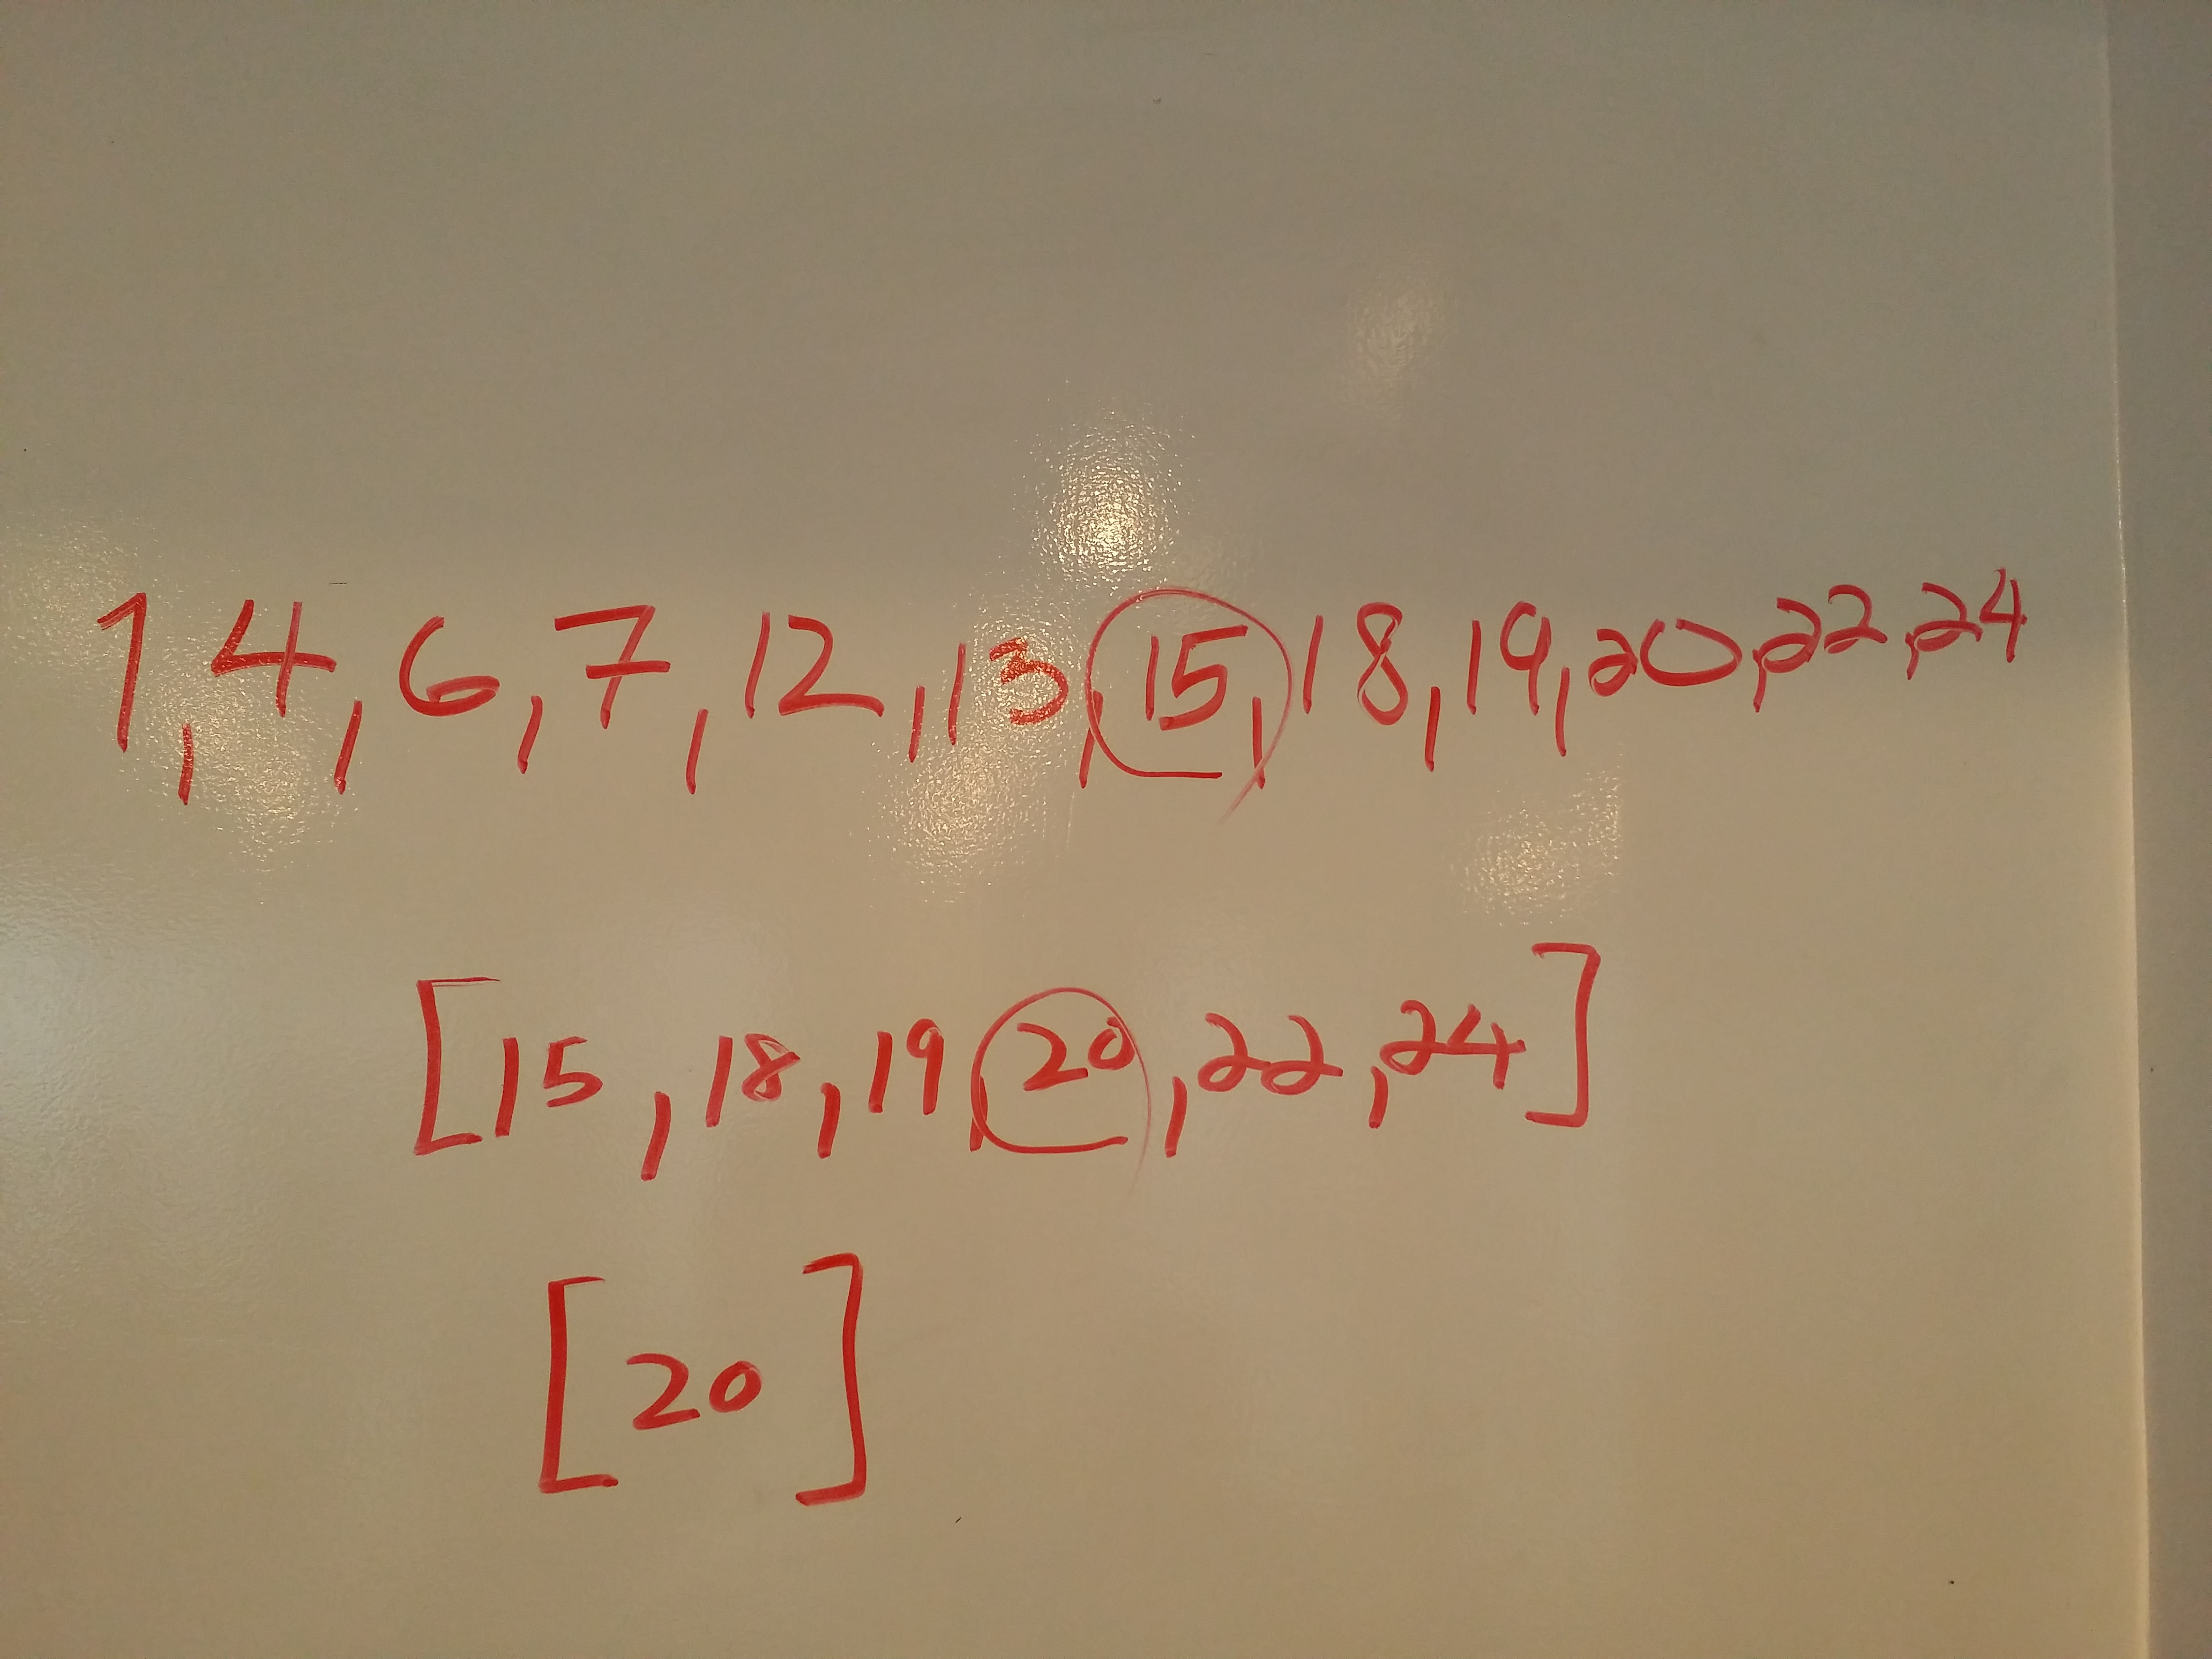 1, 4, 6, 7, 12, 13, 15, 18, 19, 20, 22, 24
[15, 18, 19, 20, 22, 24]
[20]